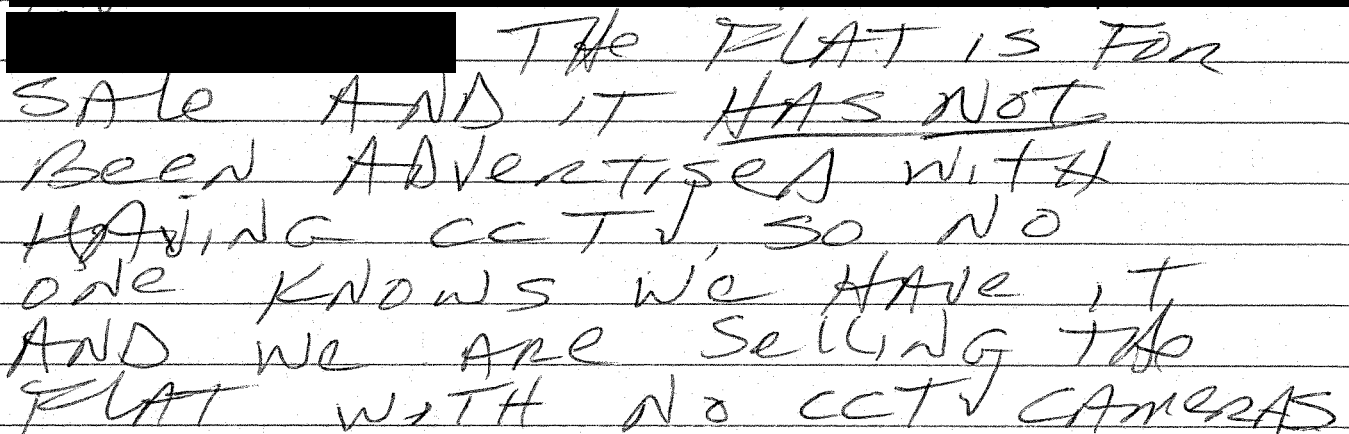 THe FLAT IS FOR
SALe AND IT HAS NOT
BeeN ADVeRTISeD WITH
HAVING CCTV, SO NO
ONe KNOWS We HAVe IT,
AND We ARe SeLLING THe
FLAT WITH NO CCTV CAMeRAS